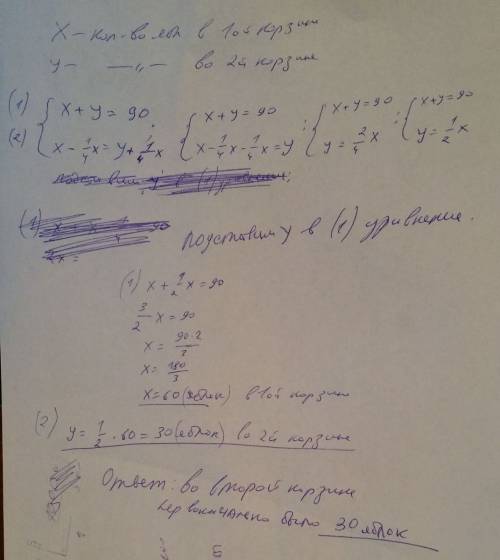 X – кол-во ябл в 1ой корзине
y – —„— во 2й корзине
(1) { x + y = 90 ; { x + y = 90 ; { x + y = 90 ; { x + y = 90
(2) { x - 1/4 x = y + 1/4 x { x - 1/4 x - 1/4 x = y { y = 2/4 x { y = 1/2 x
подставим y в (1) уравнение.
(1) x + 1/2 x = 90
3/2 x = 90
x = 90·2/3
x = 180/3
x = 60 (яблок) в 1ой корзине
(2) y = 1/2 · 60 = 30 (яблок) во 2й корзине
Ответ: во второй корзине
первоначально было 30 яблок